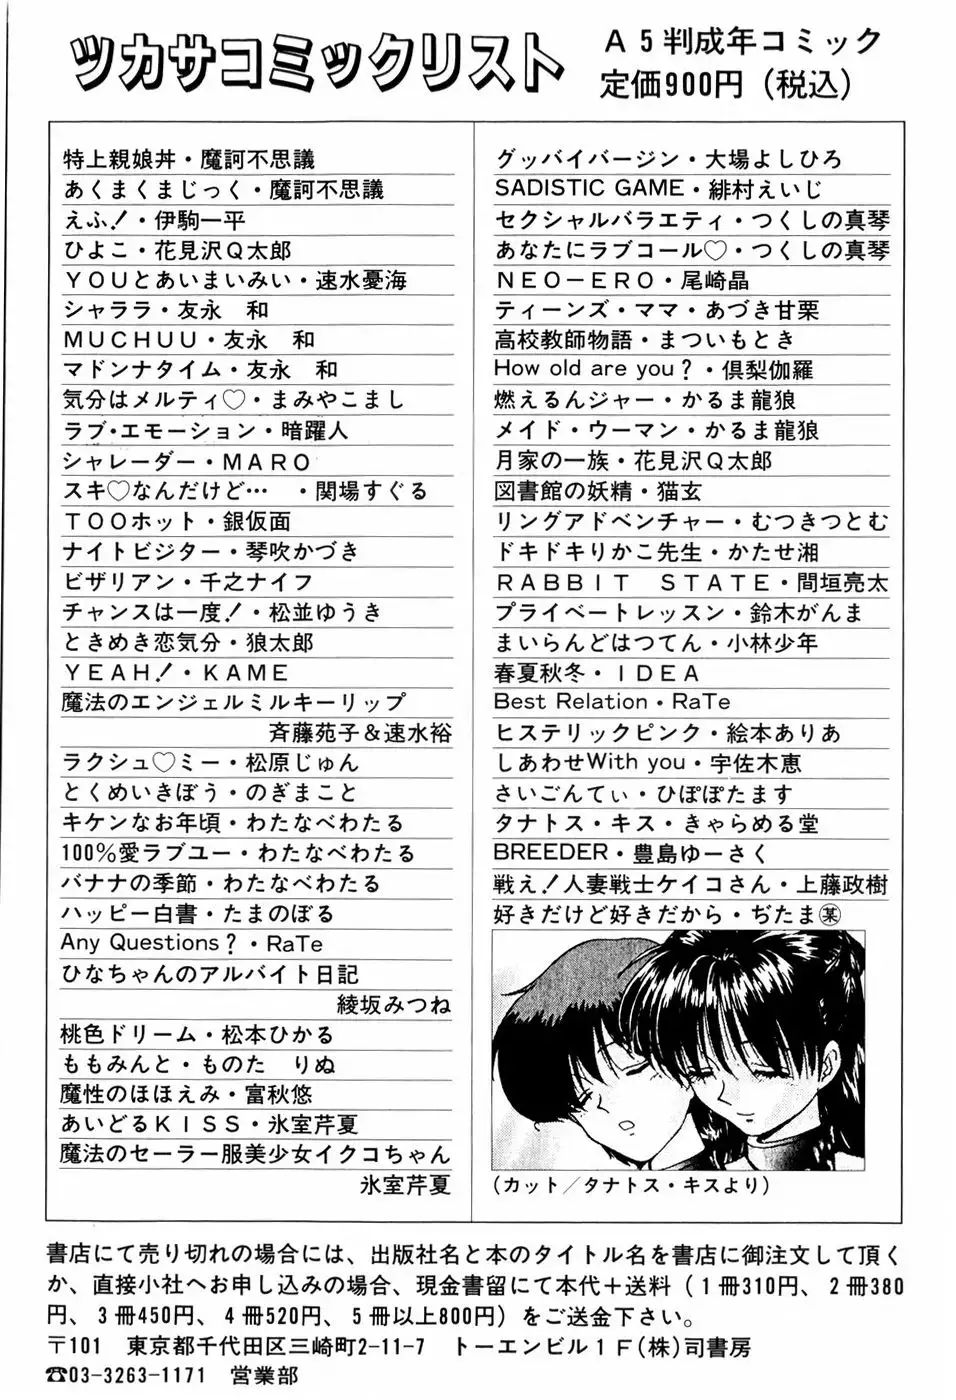 ツカサコミックリスト
A5判成年コミック
定価900円（税込）
特上親娘丼・魔訶不思議
あくまくまじっく・魔訶不思議
えふ！・伊駒一平
ひよこ・花見沢Q太郎
YOUとあいまいみい・速水憂海
シャララ・友永　和
MUCHUU・友永　和
マドンナタイム・友永　和
気分はメルティ♡・まみやこまし
ラブ・エモーション・暗躍人
シャレーダー・MARO
スキ♡なんだけど…　・関場すぐる
TOOホット・銀仮面
ナイトビジター・琴吹かづき
ビザリアン・千之ナイフ
チャンスは一度！・松並ゆうき
ときめき恋気分・狼太郎
YEAH！・KAME
魔法のエンジェルミルキーリップ
斉藤苑子＆速水裕
ラクシュ♡ミー・松原じゅん
とくめいきぼう・のぎまこと
キケンなお年頃・わたなべわたる
100%愛ラブユー・わたなべわたる
バナナの季節・わたなべわたる
ハッピー白書・たまのぼる
Any Questions？・RaTe
ひなちゃんのアルバイト日記
綾坂みつね
桃色ドリーム・松本ひかる
ももみんと・ものた　りぬ
魔性のほほえみ・富秋悠
あいどるKISS・氷室芹夏
魔法のセーラー服美少女イクコちゃん
氷室芹夏
グッバイバージン・大場よしひろ
SADISTIC GAME・緋村えいじ
セクシャルバラエティ・つくしの真琴
あなたにラブコール♡・つくしの真琴
NEO－ERO・尾崎晶
ティーンズ・ママ・あづき甘栗
高校教師物語・まついもとき
How old are you？・倶梨伽羅
燃えるんジャー・かるま龍狼
メイド・ウーマン・かるま龍狼
月家の一族・花見沢Q太郎
図書館の妖精・猫玄
リングアドベンチャー・むつきつとむ
ドキドキりかこ先生・かたせ湘
RABBIT　STATE・間垣亮太
プライベートレッスン・鈴木がんま
まいらんどはつてん・小林少年
春夏秋冬・IDEA
Best Relation・RaTe
ヒステリックピンク・絵本ありあ
しあわせWith you・宇佐木恵
さいごんてぃ・ひぽぽたます
タナトス・キス・きゃらめる堂
BREEDER・豊島ゆーさく
戦え！人妻戦士ケイコさん・上藤政樹
好きだけど好きだから・ぢたま㋲
(カット／タナトス・キスより)
書店にて売り切れの場合には、出版社名と本のタイトル名を書店に御注文して頂く
か、直接小社へお申し込みの場合、現金書留にて本代＋送料（1冊310円、2冊380
円、3冊450円、4冊520円、5冊以上800円）をご送金下さい。
〒101　東京都千代田区三崎町2-11-7　トーエンビル1F(株)司書房
☎03-3263-1171　営業部